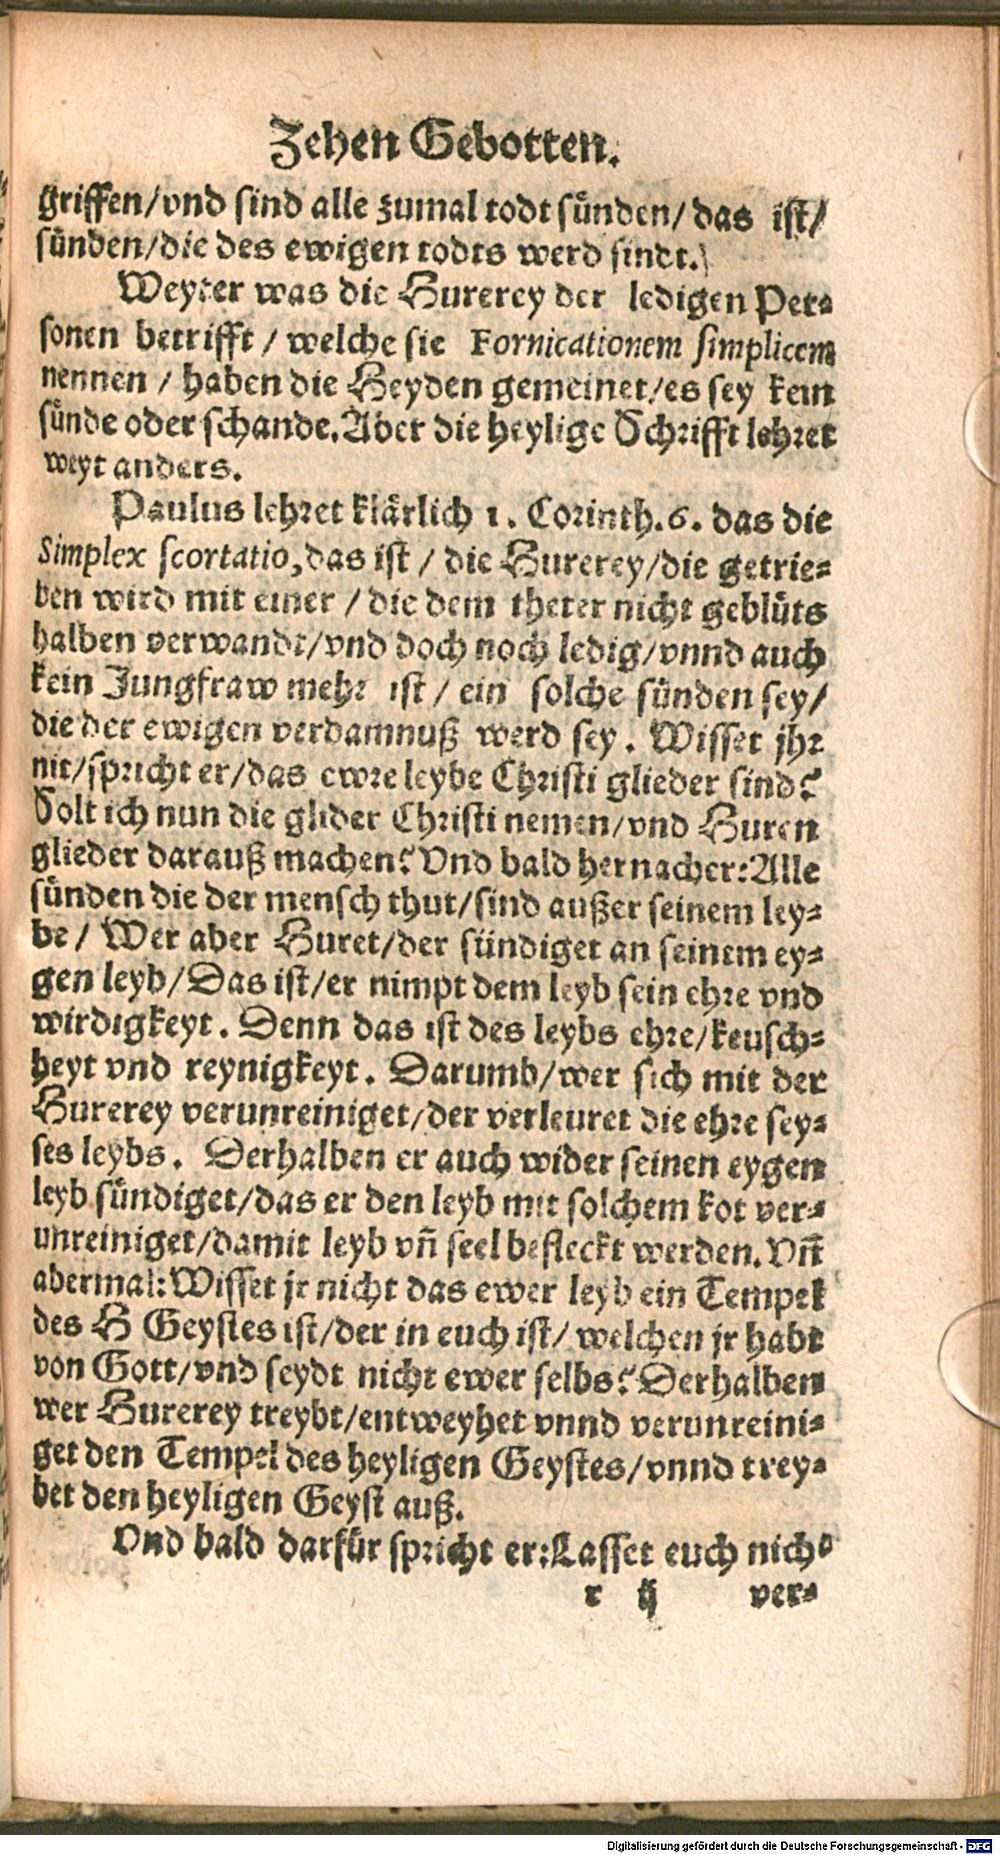 Zehen Gebotten.
griffen/vnd sind alle zumal todt sünden/das ist/
sünden/die des ewigen todts werd sindt.
Weyter was die Hurerey der ledigen Per-
sonen betrifft / welche sie Fornicationem simplicem
nennen / haben die Heyden gemeinet/es sey kein
sünde oder schande. Aber die heylige Schrifft lehret
weyt anders.
Paulus lehret klärlich 1. Corinth. 6. das die
Simplex scortatio, das ist / die Hurerey/die getrie-
ben wird mit einer / die dem theter nicht geblüts
halben verwandt/vnd doch noch ledig/vnnd auch
kein Jungfraw mehr ist / ein solche sünden sey/
die der ewigen verdamnuß werd sey. Wisset jhr
nit/spricht er/das ewre leybe Christi glieder sind?
Solt ich nun die glider Christi nemen/vnd Huren
glieder darauß machen? Vnd bald hernacher: Alle
sünden die der mensch thut/sind außer seinem ley-
be / Wer aber Huret/der sündiget an seinem ey-
gen leyb/Das ist/er nimpt dem leyb sein ehre vnd
wirdigkeyt. Denn das ist des leybs ehre/keusch-
heyt vnd reynigkeyt. Darumb/wer sich mit der
Hurerey verunreiniget/der verleuret die ehre sey-
ses leybs. Derhalben er auch wider seinen eygen
leyb sündiget/das er den leyb mit solchem kot ver-
unreiniget/damit leyb vñ seel befleckt werden. Vñ
abermal: Wisset jr nicht das ewer leyb ein Tempel
des H Geystes ist/der in euch ist/ welchen jr habt
von Gott/vnd seydt nicht ewer selbs? Derhalben
wer Hurerey treybt/entweyhet vnnd verunreini-
get den Tempel des heyligen Geystes/vnnd trey-
bet den heyligen Geyst auß.
Vnd bald darfür spricht er: Lasset euch nicht
r ij ver-
Digitalisierung gefördert durch die Deutsche Forschungsgemeinschaft - DFG